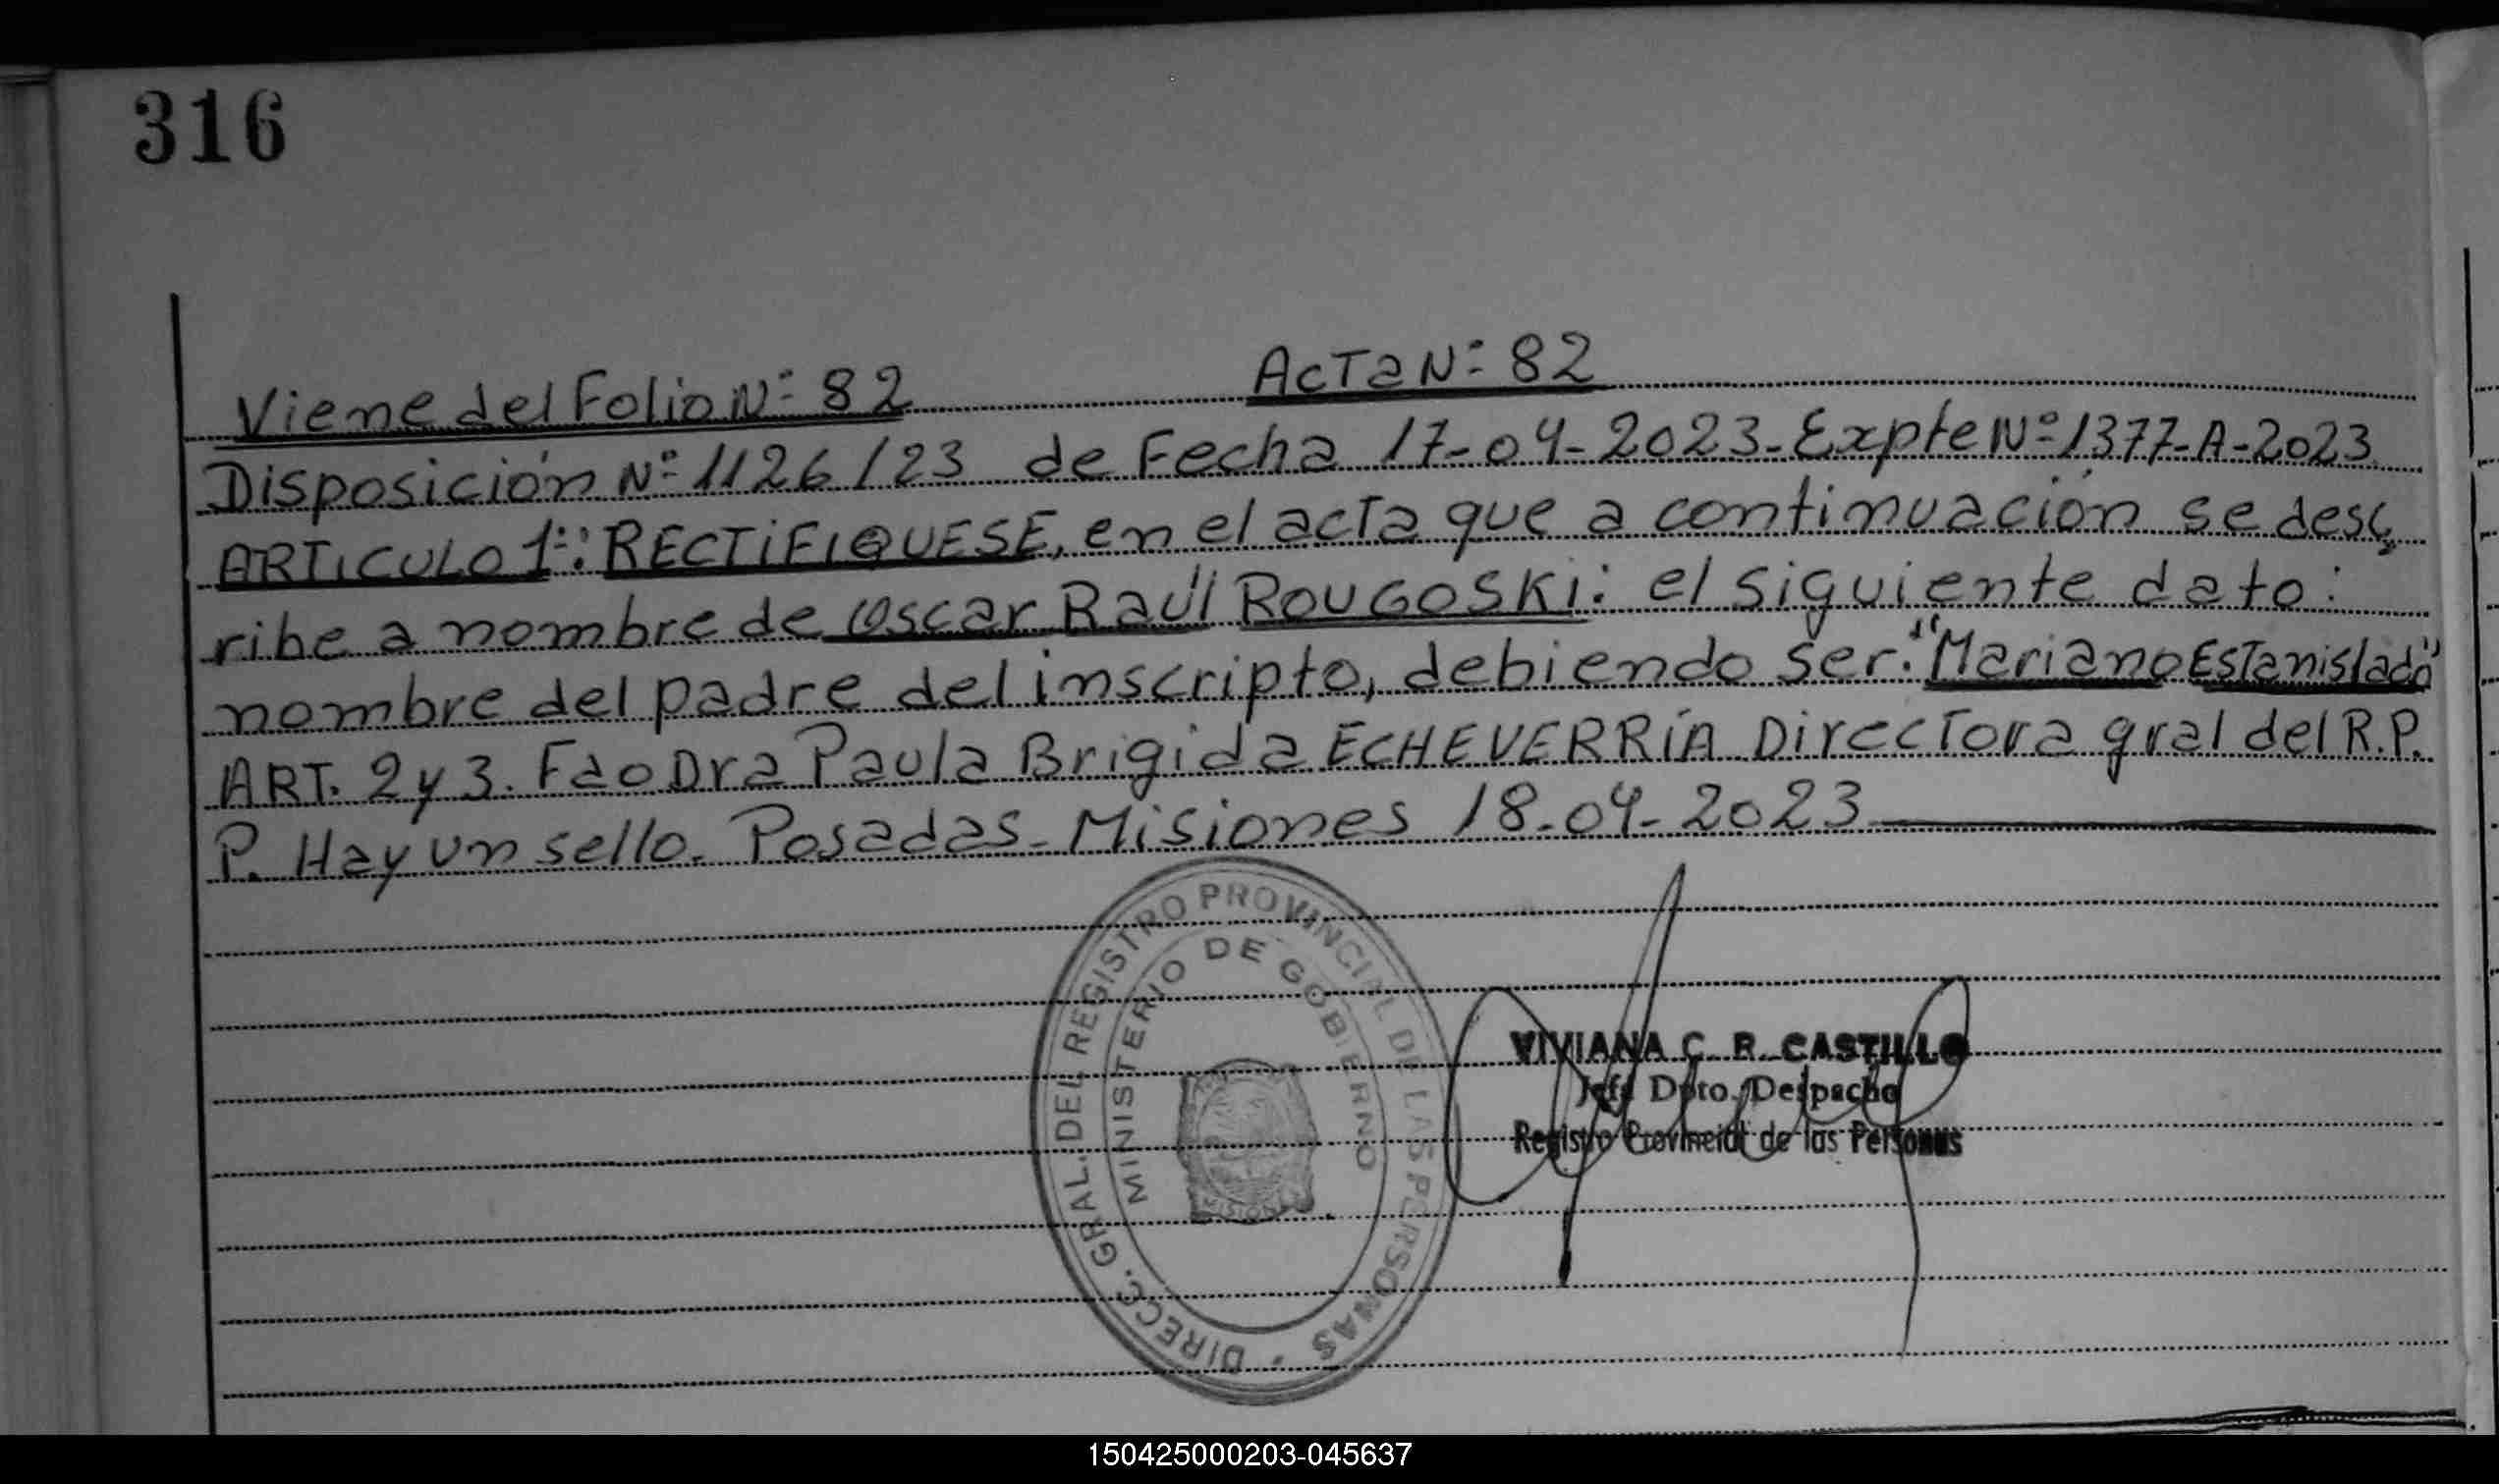 316
Viene del Folio Nº 82 ActaNº 82
Disposición Nº 1126/23 de Fecha 17-04-2023-Expte Nº 1377-A-2023
ARTICULO 1º: RECTIFIQUESE, en el acta que a continuación se desc
ribe a nombre de Oscar Raúl ROUGOSKI: el siguiente dato:
nombre del padre del inscripto, debiendo ser: "Mariano Estanislado"
ART. 2 y 3. Fdo Dra Paula Brigida ECHEVERRÍA Directora gral del R.P.
P. Hay un sello. Posadas-Misiones 18-04-2023
DIRECC. GRAL. DEL REGISTRO PROVINCIAL DE LAS PERSONAS
MINISTERIO DE GOBIERNO
MISIONES
VIVIANA C. R. CASTILLO
Jefe Dpto. Despacho
Registro Provincial de las Personas
150425000203-045637